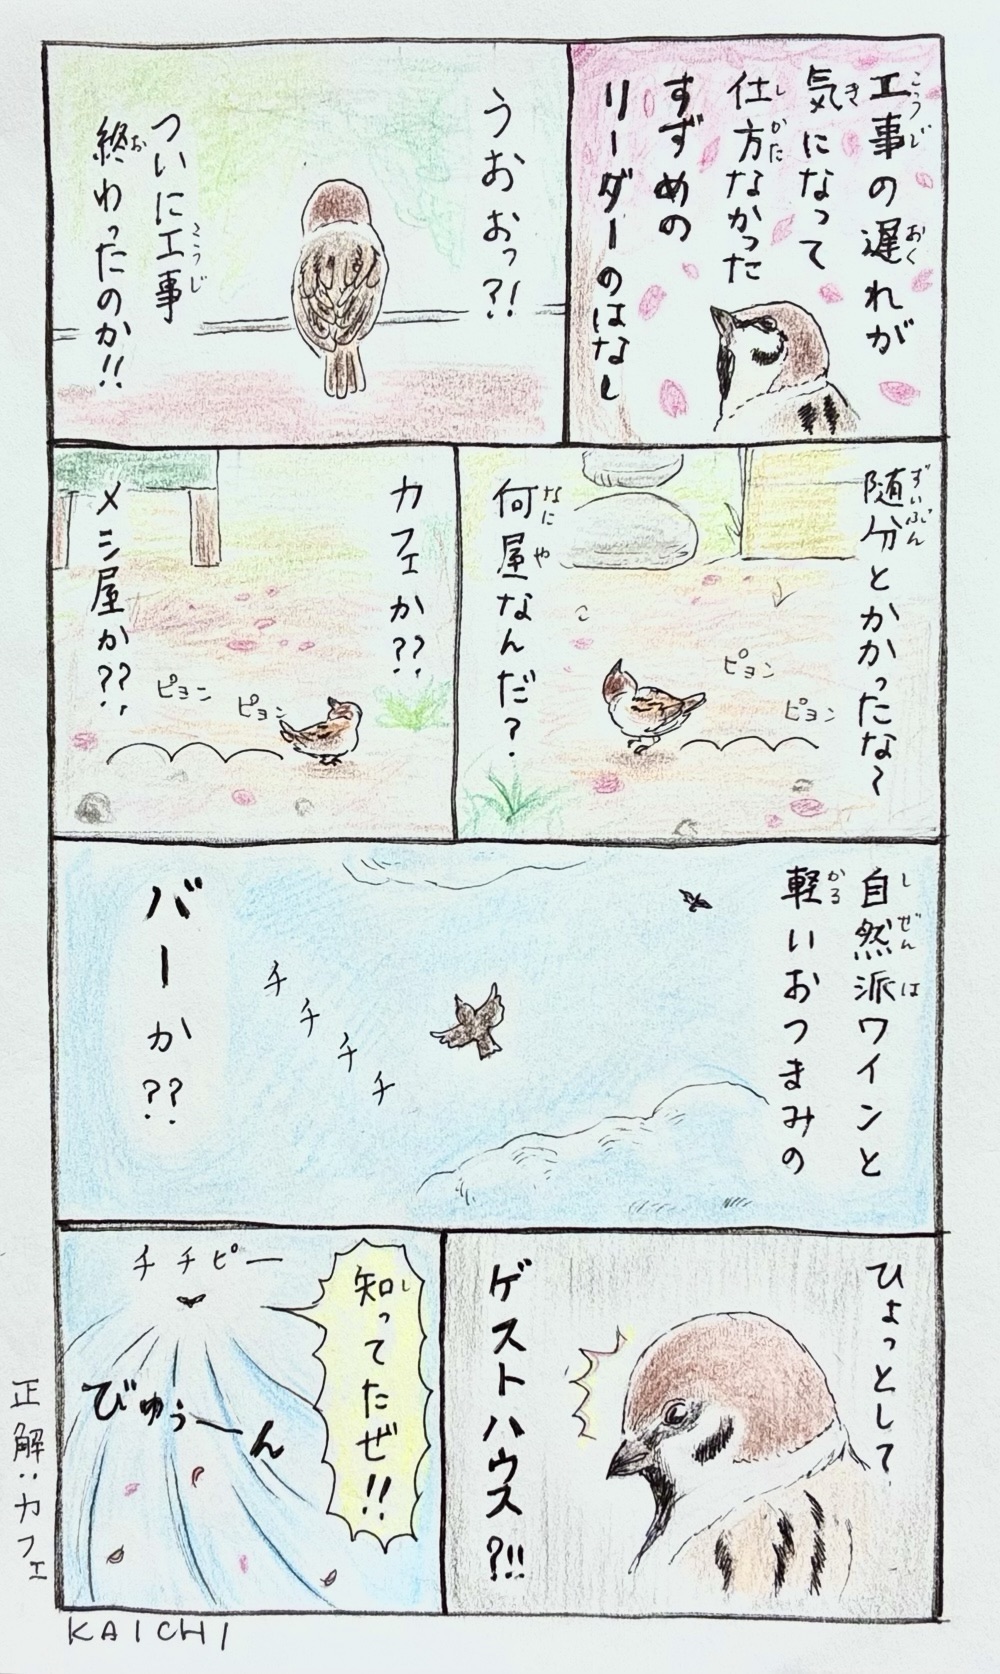 工事の遅れが
気になって
仕方なかった
すずめの
リーダーのはなし
こうじ
おく
き
しかた
うおおっ?!
ついに工事
終わったのか!!
こうじ
お
随分とかかったな〜
ずいぶん
ピョン
ピョン
何屋なんだ?
なにや
カフェか??
ピョン
ピョン
メシ屋か??
自然派ワインと
しぜんは
軽いおつまみの
かる
チチチチ
バーか??
ひょっとして?
ゲストハウス?!!
知ってたぜ!!
し
チチピー
びゅぅーん
正解:カフェ
KAICHI